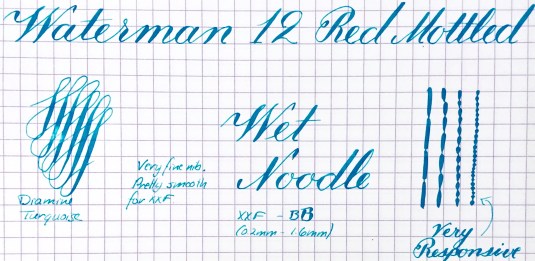 Waterman 12 Red Mottled
Diamine
Turquoise
Very fine nib.
Pretty smooth
for XXF
Wet
Noodle
XXF - BB
(0.2mm - 1.6mm)
Very
Responsive